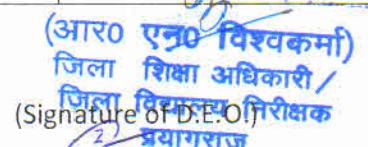 (आर0 एन0 विश्वकर्मा)
जिला शिक्षा अधिकारी/
जिला विद्यालय निरीक्षक
(Signature of D.E.O.)
प्रयागराज